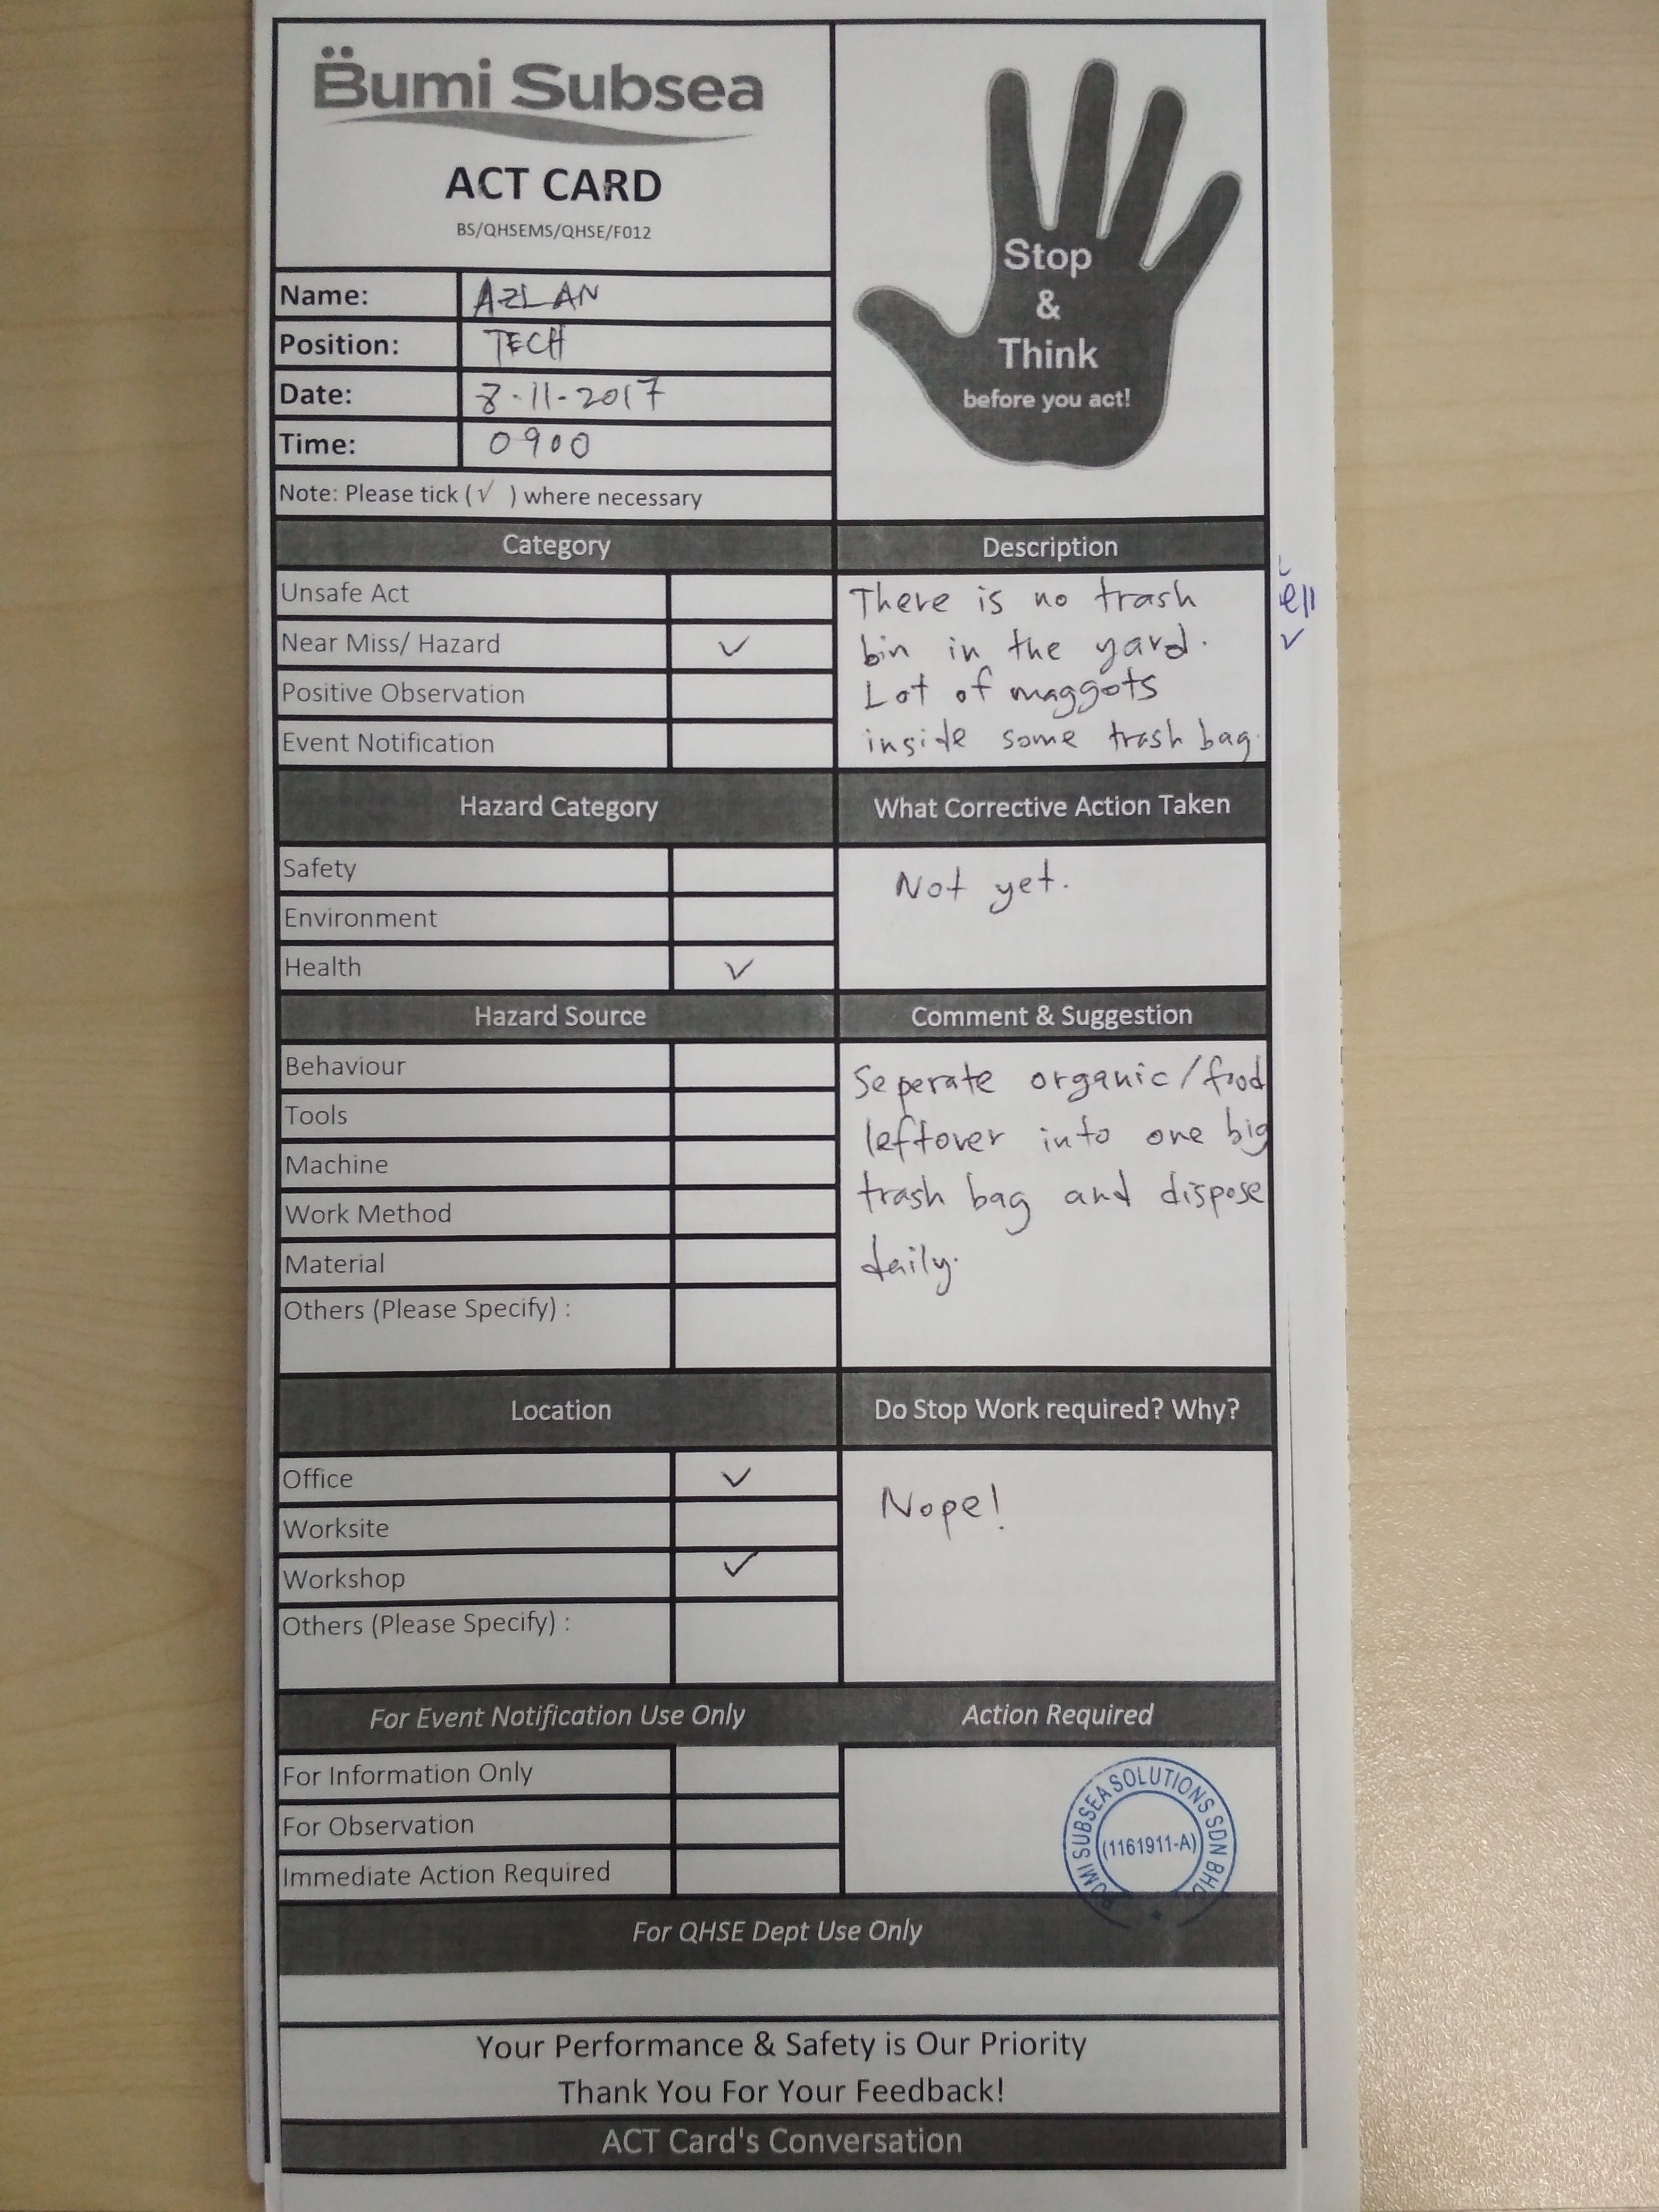 Bumi Subsea
ACT CARD
BS/QHSEMS/QHSE/F012
Name: AZLAN
Position: TECH
Date: 8-11-2017
Time: 0900
Note: Please tick (√ ) where necessary
Stop
&
Think
before you act!
Category
Unsafe Act
Near Miss/ Hazard ✓
Positive Observation
Event Notification
Description
There is no trash
bin in the yard.
Lot of maggots
inside some trash bag.
Hazard Category
Safety
Environment
Health ✓
What Corrective Action Taken
Not yet.
Hazard Source
Behaviour
Tools
Machine
Work Method
Material
Others (Please Specify) :
Comment & Suggestion
Seperate organic/food
leftover into one big
trash bag and dispose
daily.
Location
Office ✓
Worksite
Workshop ✓
Others (Please Specify) :
Do Stop Work required? Why?
Nope!
For Event Notification Use Only
For Information Only
For Observation
Immediate Action Required
Action Required
BUMI SUBSEA SOLUTIONS SDN BHD
(1161911-A)
For QHSE Dept Use Only
Your Performance & Safety is Our Priority
Thank You For Your Feedback!
ACT Card's Conversation